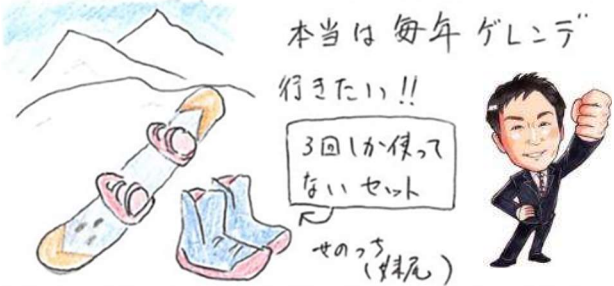 本当は毎年ゲレンデ
行きたい!!
3回しか使って
ないセット
せのっち
(妹尾)